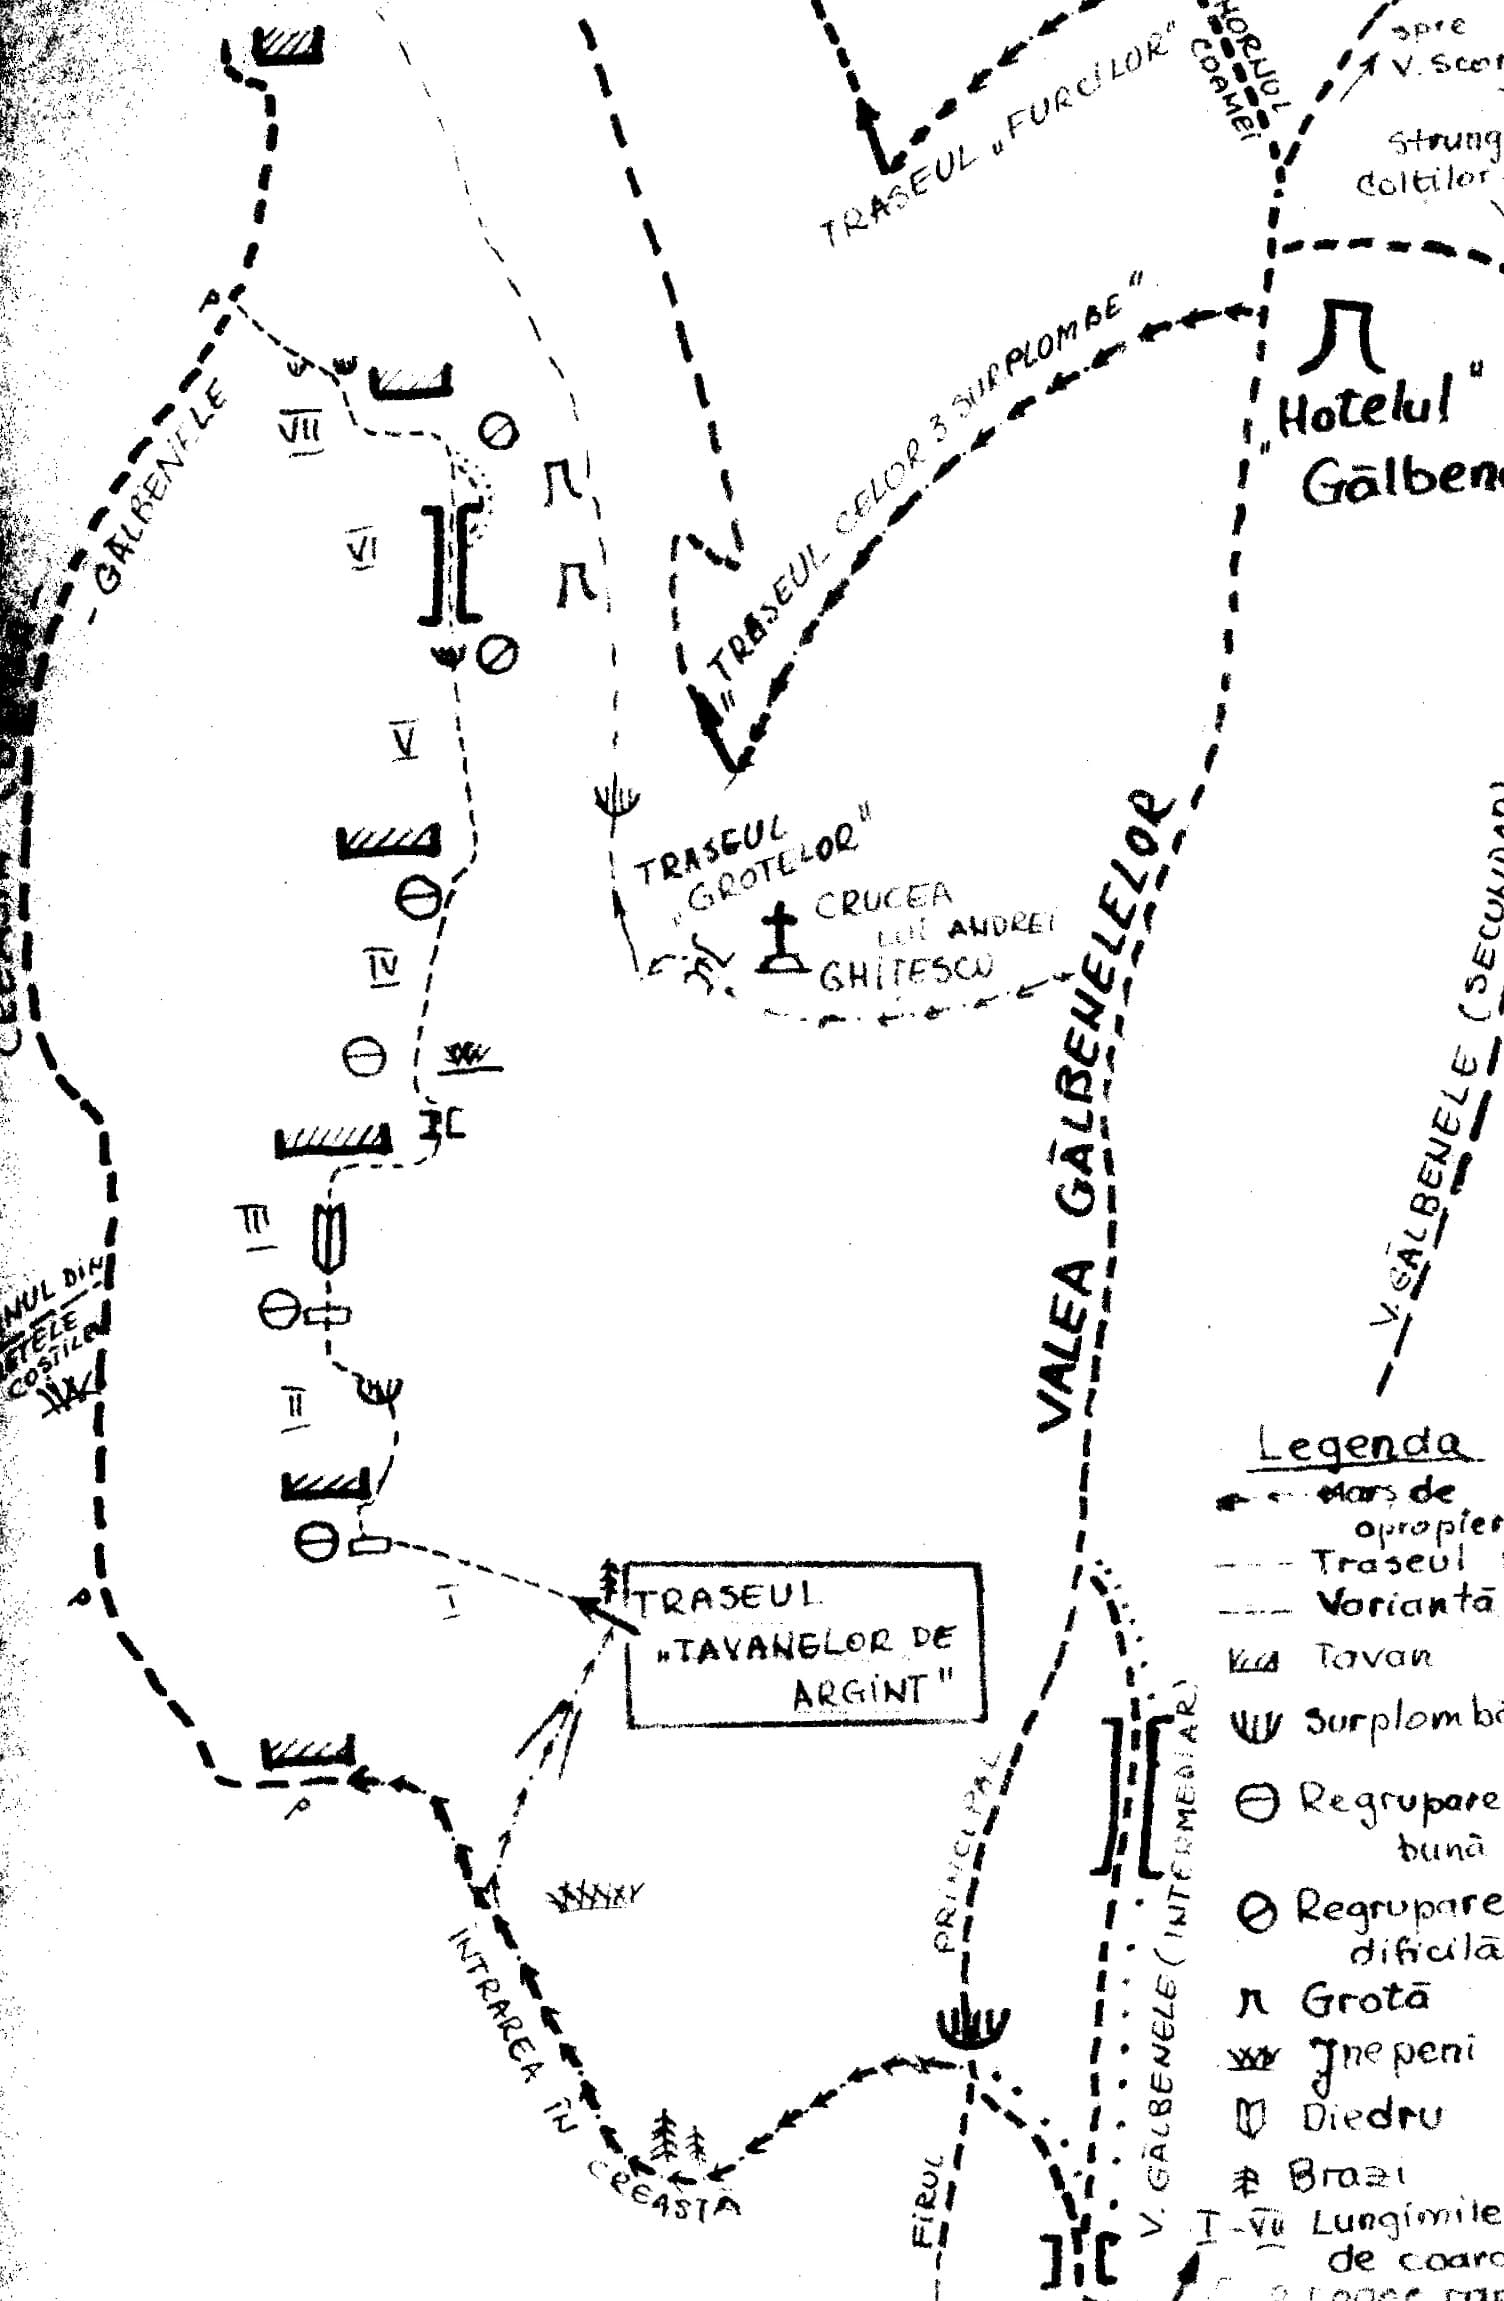 HORNUL
COAMEI
spre
V. Scor
Strung
Colților
TRASEUL „FURCILOR"
"TRASEUL CELOR 3 SURPLOMBE"
„Hotelul"
Gălbene
GĂLBENELE
VII
VI
V
TRASEUL
„GROTELOR"
CRUCEA
LUI ANDREI
GHIȚESCU
IV
VALEA GĂLBENELELOR
V. GĂLBENELE (SECUNDAR)
III
NUL DIN
COSTILE
II
I
TRASEUL
„TAVANELOR DE
ARGINT"
PRINCIPAL
FIRUL
V. GĂLBENELE (INTERMEDIAR)
INTRAREA ÎN
CREASTĂ
Legenda
Marș de
apropier
Traseul
Variantă
Tavan
Surplombă
Regrupare
bună
Regrupare
dificilă
Grotă
Jnepeni
Diedru
Brazi
I-VII Lungimile
de coard